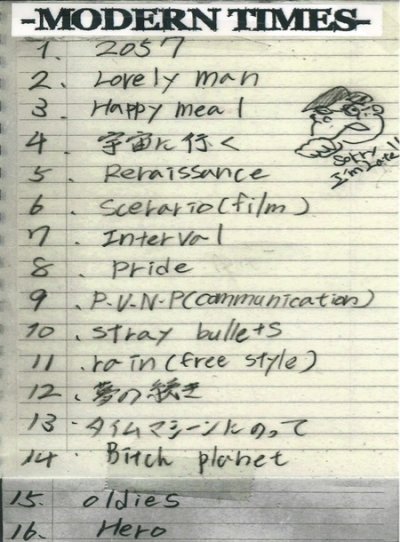 -MODERN TIMES-
1. 2057
2. Lovely man
3. Happy meal
4. 宇宙に行く
Sorry
I'm Late!!
5. Renaissance
6. Scenario(film)
7. Interval
8. Pride
9. P.V.N.P(communication)
10. stray bullets
11. rain(free style)
12. 夢の続き
13. タイムマシーンにのって
14. Bitch planet
15. oldies
16. Hero